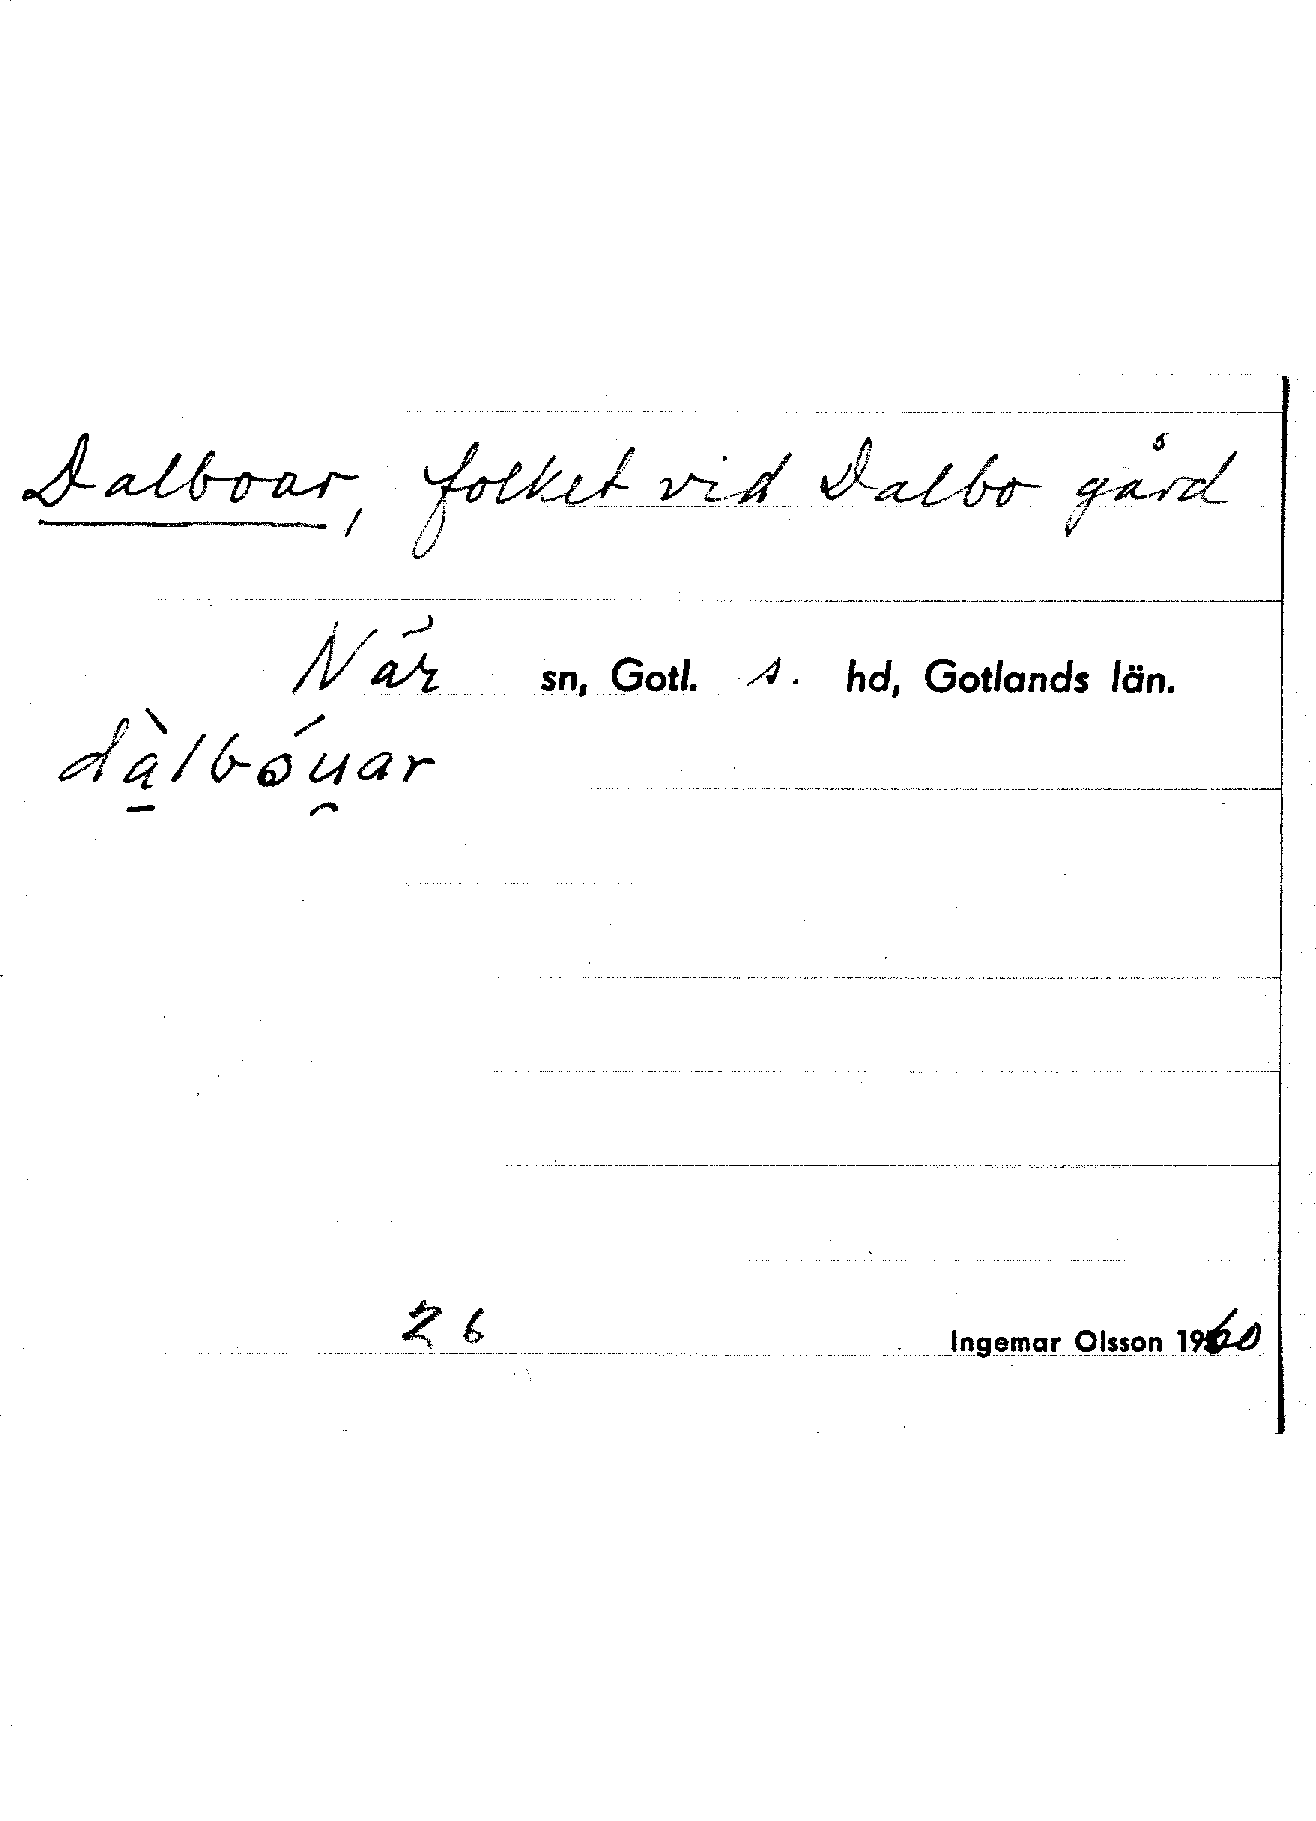 Dalboar, folket vid Dalbo gård
När sn, Gotl. s. hd, Gotlands län.
dа̱̀lbóu̯ar
26
Ingemar Olsson 1960